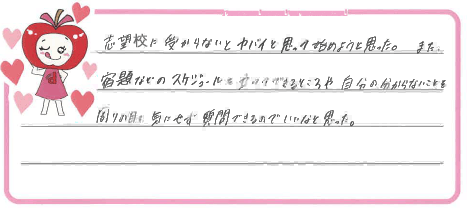 志望校に受からないとヤバイと思って始めようと思った。また、
宿題などのスケジュールを立ててできるところや自分の分からないことを
周りの目を気にせず質問できるのでいいなと思った。